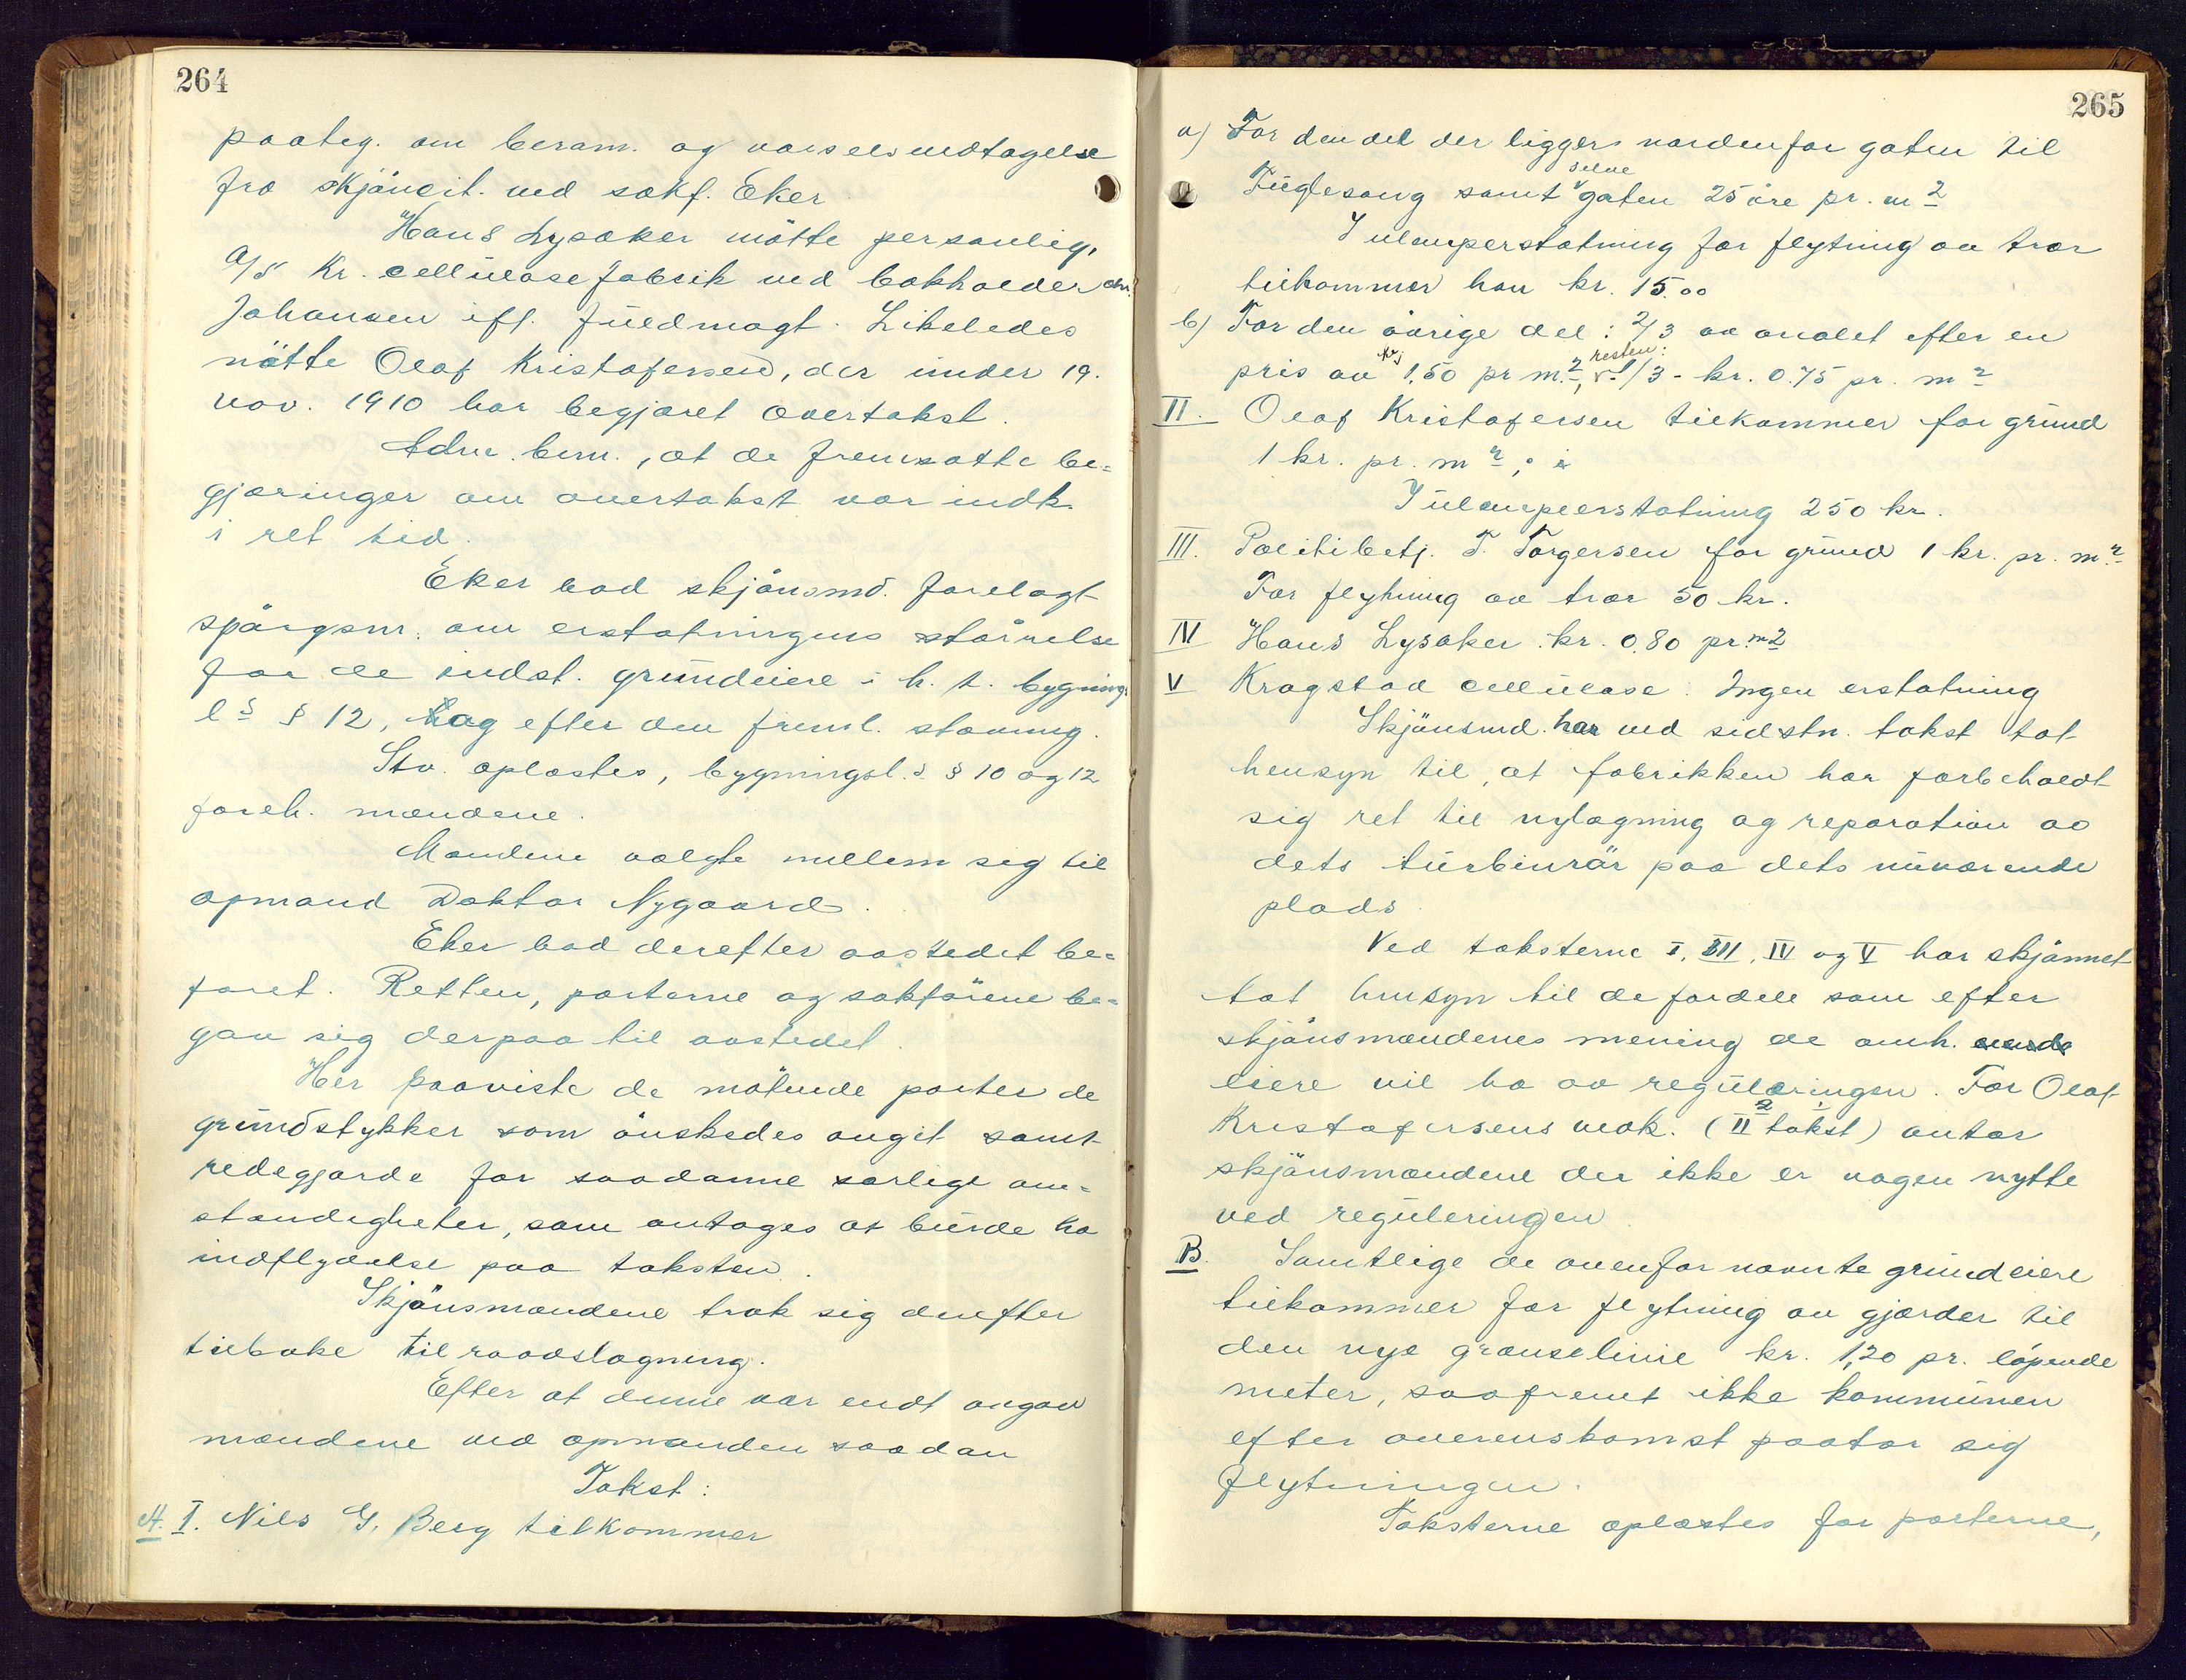 264
paateg. om beram. og varselsmdtagelse
fra skjöncit. ved sakf. Eker
Hans Lysaker mötte personlig,
A/S Kr. cellulosefabrik ved bokholder Chr.
Johansen ifl. fuldmagt. Likeledes
mötte Olaf Kristofersen, der under 19.
nov. 1910 har begjæret overtakst.
Adm. bem., at de fremsatte be=
gjæringer om overtakst var indk.
i ret tid.
Eker bad skjönsmd. forelagt
spörgsm. om erstatningens störrelse
for de indst. grundeiere i h. t. bygnings
l^s § 12, og efter den freml. stevning.
Stv. oplæstes, bygningsl.s § 10 og 12
foreh. mændene.
Mændene valgte mellem sig til
opmand Doktor Nygaard.
Eker bad derefter aastedet be=
faret. Retten, parterne og sakförene be=
gav sig derpaa til aastedet.
Her paaviste de mötende parter de
grundstykker som önskedes angit samt
redegjorde for saadanne særlige om=
stændigheter, som antages at burde ha
indflydelse paa taksten.
Skjönsmændene trak sig derefter
tilbake til raadslagning.
Efter at denne var endt avgav
mændene ved opmanden saadan
Takst:
A. I. Nils G. Berg tilkommer
265
a) For den del der ligger nordenfor gaten til
Fuglesang samt selve gaten 25 öre pr. m²
I ulempeerstatning for flytning av trær
tilkommer han kr. 15.00
b) For den övrige del: 2/3 av arealet efter en
pris av kr. 1,50 pr m.², resten: 1/3 - kr. 0.75 pr. m²
II. Olaf Kristofersen tilkommer for grund
1 kr. pr. m²;
I ulempeerstatning 250 kr.
III. Politibetj. T. Torgersen for grund 1 kr. pr. m²
For flytning av trær 50 kr.
IV Hans Lysaker. kr. 0.80 pr. m²
V Kragstad cellulose. Ingen erstatning
Skjönsmd. har ved sidstn. takst tat
hensyn til, at fabrikken har forbeholdt
sig ret til nylægning og reparation av
dets turbinrör paa dets nuværende
plads.
Ved taksterne I, III, IV og V har skjönnet
tat hensyn til de fordele som efter
skjönsmændenes mening de omh.
eiere vil ha av reguleringen. For Olaf
Kristofersens vedk. (II takst) antar
skjönsmændene der ikke er nogen nytte
ved reguleringen.
B. Samtlige de ovenfor nævnte grundeiere
tilkommer for flytning av gjærder til
den nye grænselinie kr. 1,20 pr. löpende
meter, saafremt ikke kommunen
efter overenskomst paatar sig
flytningen.
Taksterne oplæstes for parterne,